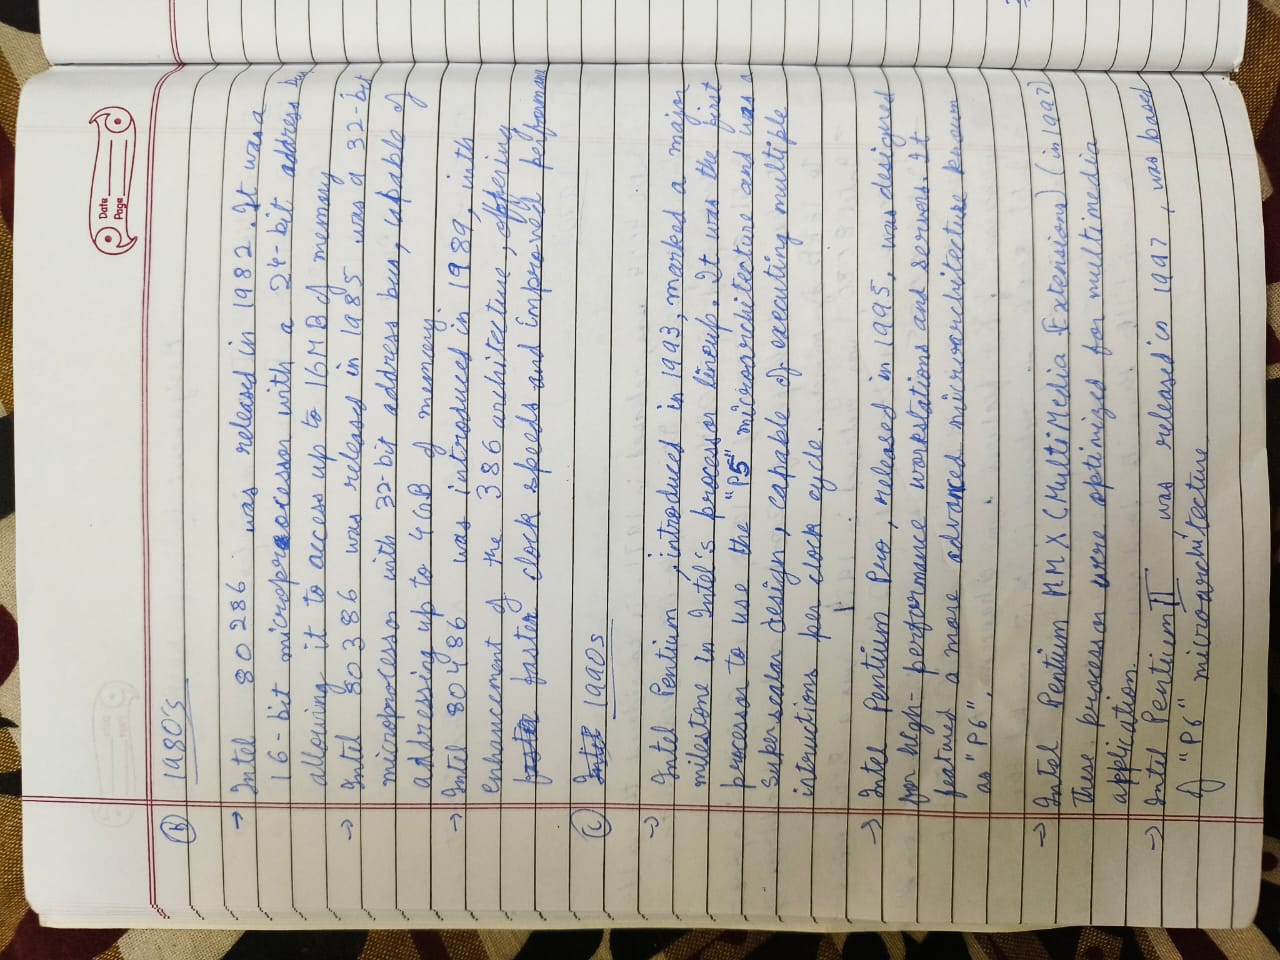 Date
Page
(B) 1980's
→ Intel 80286 was released in 1982. It was a
16-bit microprocessor with a 24-bit address bus
allowing it to access up to 16MB of memory
→ Intel 80386 was released in 1985 was a 32-bit
microprocessor with 32-bit address bus, capable of
addressing up to 4GB of memory.
→ Intel 80486 was introduced in 1989, with
enhancement of the 386 architecture, offering
faster clock speeds and improved performance
(C) 1990s
→ Intel Pentium, introduced in 1993, marked a major
milestone in Intel's processor lineup. It was the first
processor to use the "P5" microarchitecture and was a
superscalar design, capable of executing multiple
intructions per clock cycle.
→ Intel Pentium Pro, released in 1995, was designed
for high-performance workstations and servers. It
featured a more advanced microarchitecture known
as "P6".
→ Intel Pentium MMX (MultiMedia Extensions) (in 1997)
These processor were optimized for multimedia
application.
→ Intel Pentium II, was released in 1997, was based
of "P6" microarchitecture